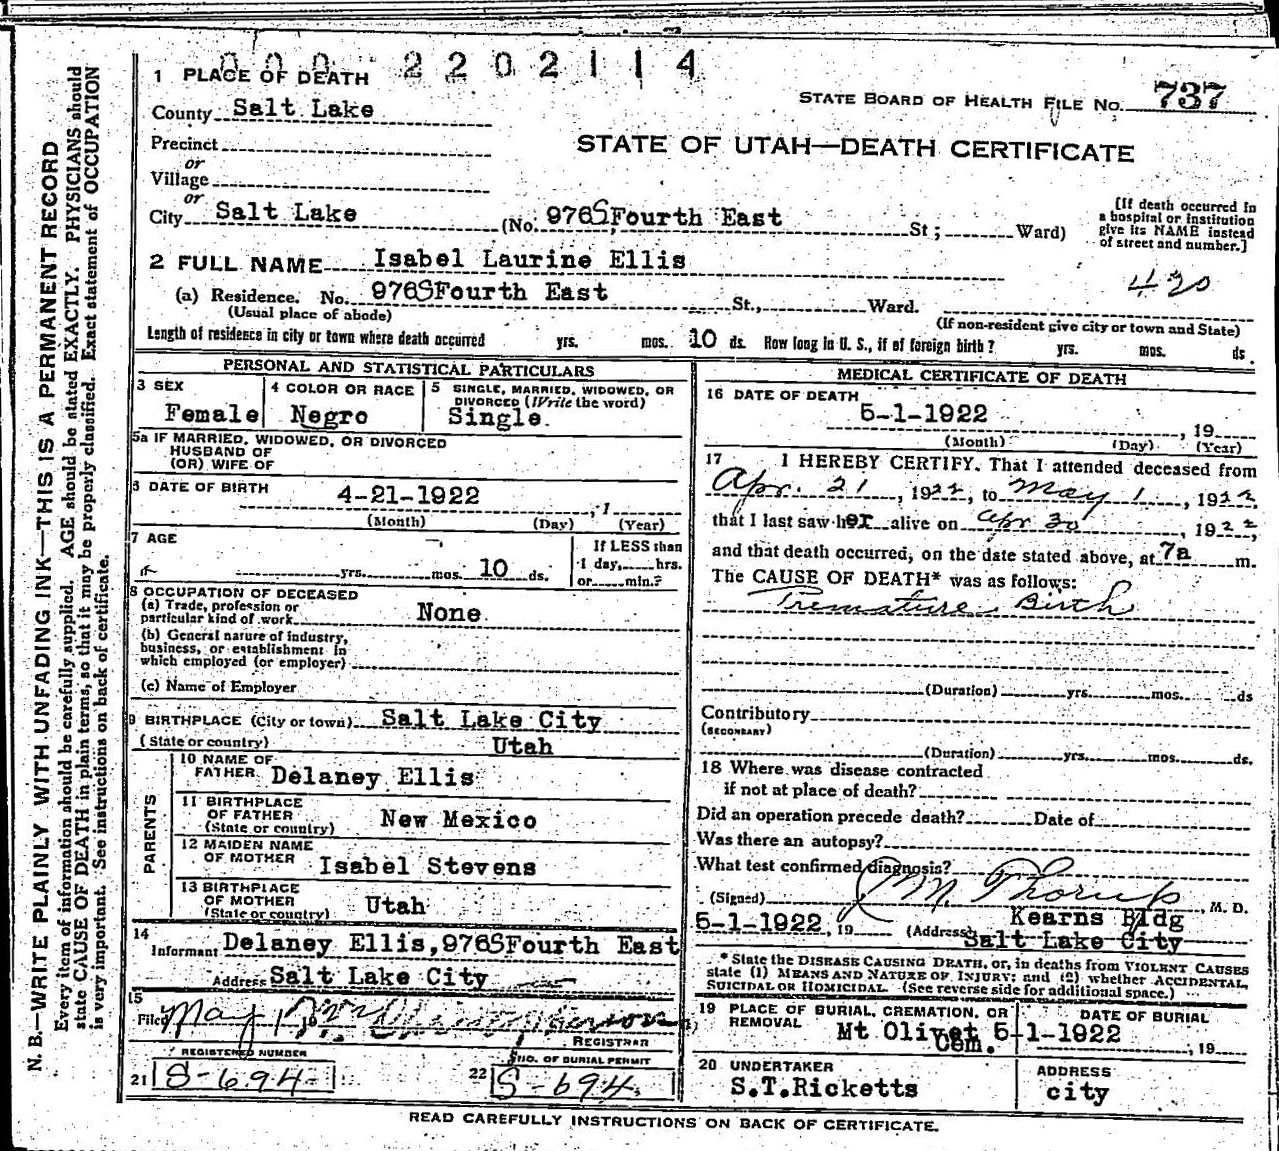 000 2202114
1 PLACE OF DEATH
STATE BOARD OF HEALTH FILE NO. 737
County Salt Lake
STATE OF UTAH—DEATH CERTIFICATE
Precinct
or
Village
or
City Salt Lake (No. 976S Fourth East St ; Ward)
[If death occurred in
a hospital or institution
give its NAME instead
of street and number.]
2 FULL NAME Isabel Laurine Ellis
420
(a) Residence. No. 976S Fourth East St., Ward.
(Usual place of abode) (If non-resident give city or town and State)
Length of residence in city or town where death occurred yrs. mos. 10 ds. How long in U. S., if of foreign birth? yrs. mos. ds.
PERSONAL AND STATISTICAL PARTICULARS
3 SEX Female
4 COLOR OR RACE Negro
5 SINGLE, MARRIED, WIDOWED, OR
DIVORCED (Write the word)
Single.
5a IF MARRIED, WIDOWED, OR DIVORCED
HUSBAND OF
(OR) WIFE OF
6 DATE OF BIRTH 4-21-1922 , 1
(Month) (Day) (Year)
7 AGE
yrs. mos. 10 ds.
If LESS than
1 day, hrs.
or min.?
8 OCCUPATION OF DECEASED
(a) Trade, profession or
particular kind of work None
(b) General nature of industry,
business, or establishment in
which employed (or employer)
(c) Name of Employer
9 BIRTHPLACE (City or town) Salt Lake City
(State or country) Utah
PARENTS
10 NAME OF
FATHER Delaney Ellis
11 BIRTHPLACE
OF FATHER
(State or country) New Mexico
12 MAIDEN NAME
OF MOTHER Isabel Stevens
13 BIRTHPLACE
OF MOTHER
(State or country) Utah
14
Informant Delaney Ellis, 976S Fourth East
Address Salt Lake City
15
Filed May
REGISTRAR
REGISTERED NUMBER
21 S-694
NO. OF BURIAL PERMIT
22 S-694
MEDICAL CERTIFICATE OF DEATH
16 DATE OF DEATH
5-1-1922 , 19
(Month) (Day) (Year)
17 I HEREBY CERTIFY. That I attended deceased from
Apr. 21 , 1922, to May 1 , 1922
that I last saw her alive on Apr 30 , 1922,
and that death occurred, on the date stated above, at 7a m.
The CAUSE OF DEATH* was as follows:
Premature Birth
(Duration) yrs. mos. ds
Contributory
(SECONDARY)
(Duration) yrs. mos. ds.
18 Where was disease contracted
if not at place of death?
Did an operation precede death? Date of
Was there an autopsy?
What test confirmed diagnosis?
(Signed) Thorup , M. D.
5-1-1922 , 19 (Address) Kearns Bldg
Salt Lake City
* State the DISEASE CAUSING DEATH, or, in deaths from VIOLENT CAUSES
state (1) MEANS AND NATURE OF INJURY; and (2) whether ACCIDENTAL,
SUICIDAL OR HOMICIDAL. (See reverse side for additional space.)
19 PLACE OF BURIAL, CREMATION, OR
REMOVAL
Mt Olivet
Cem.
DATE OF BURIAL
5-1-1922 , 19
20 UNDERTAKER
S.T.Ricketts
ADDRESS
city
READ CAREFULLY INSTRUCTIONS ON BACK OF CERTIFICATE.
N. B.—WRITE PLAINLY WITH UNFADING INK—THIS IS A PERMANENT RECORD
Every item of information should be carefully supplied. AGE should be stated EXACTLY. PHYSICIANS should
state CAUSE OF DEATH in plain terms, so that it may be properly classified. Exact statement of OCCUPATION
is very important. See instructions on back of certificate.